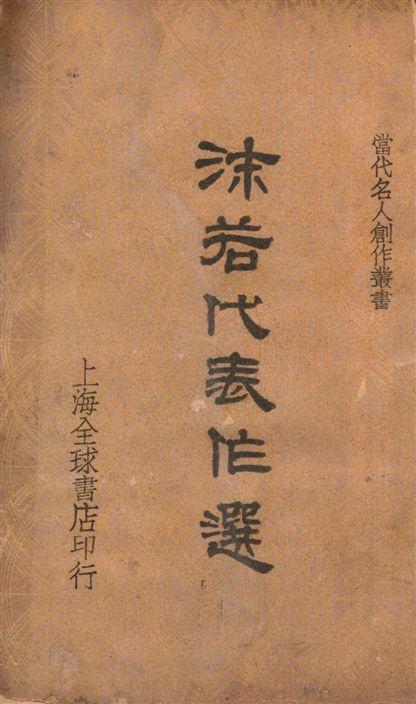 當代名人創作叢書
沫若代表作選
上海全球書店印行